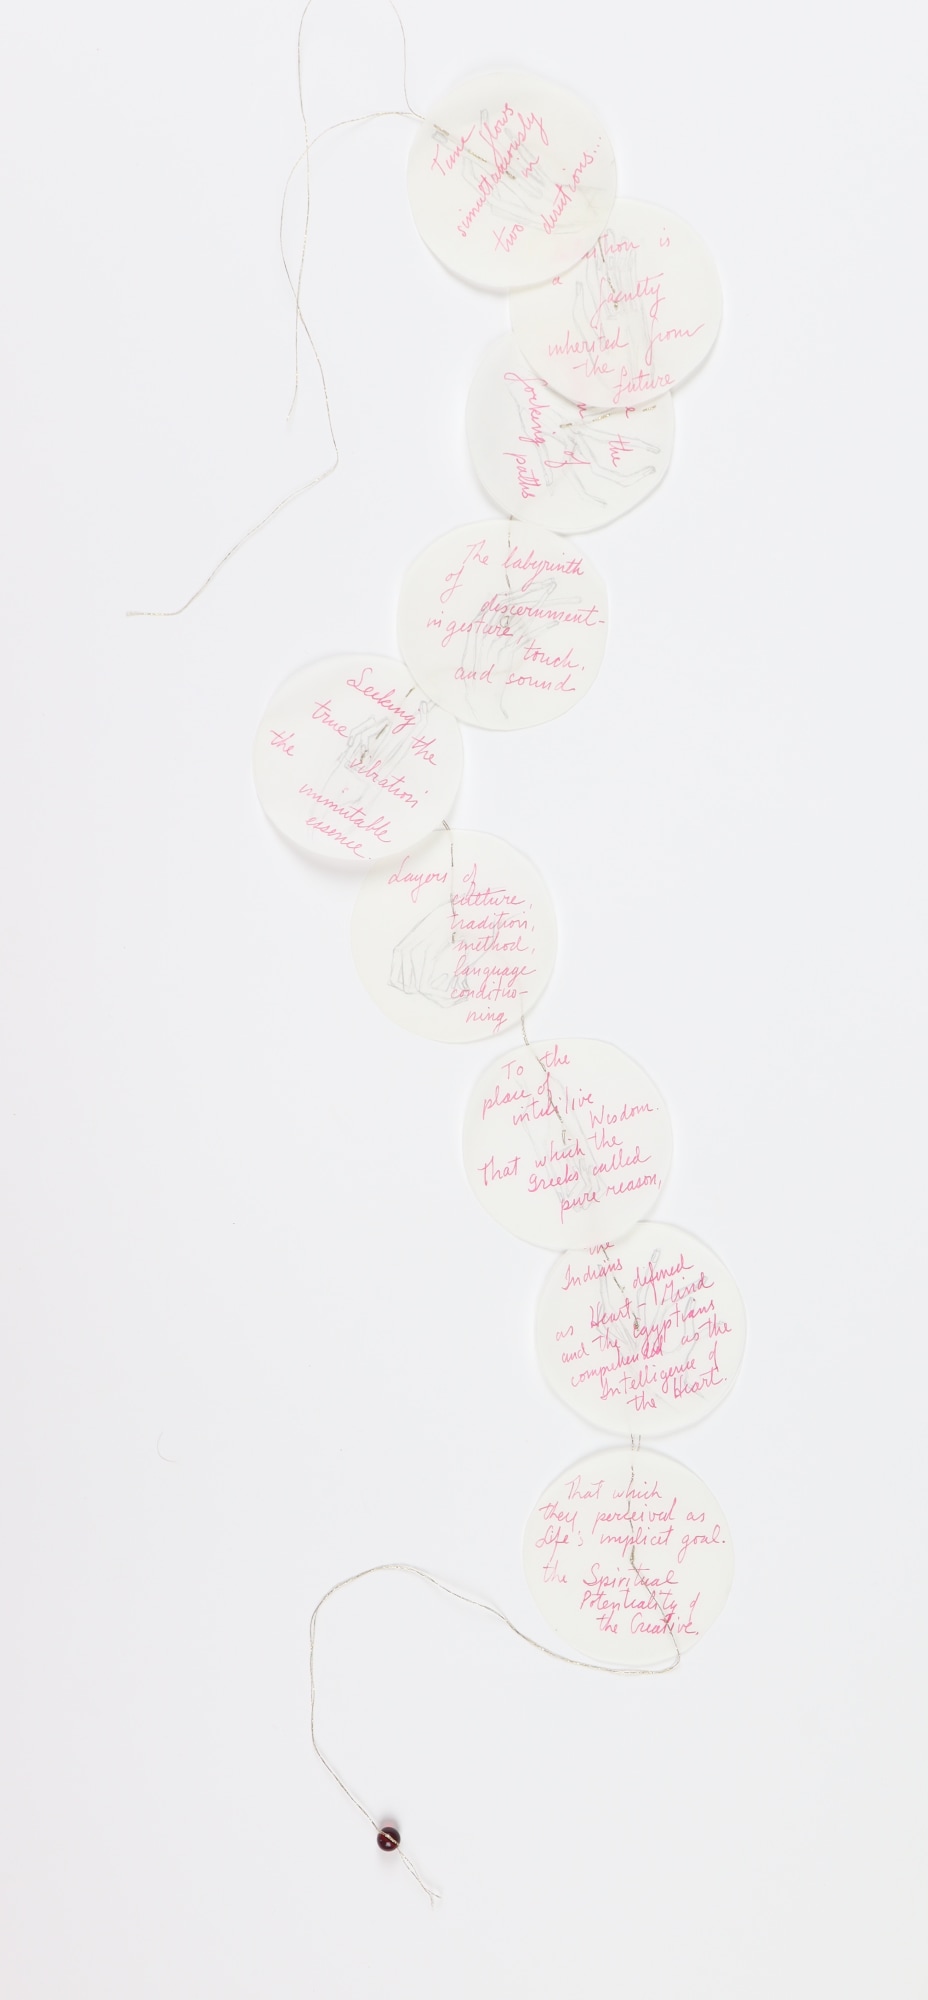 Time flows
simultaneously
in
two directions...
is
a faculty
inherited from
the future
the
forking of
paths
The labyrinth
of discernment-
in gesture,
touch,
and sound
Seeking the
true vibration
the immutable
essence.
Layers of
culture,
tradition,
method,
language
conditio-
ning
To the
place of
intuitive
Wisdom.
That which the
Greeks called
pure reason,
the
Indians defined
as Heart-Mind
and the Egyptians
comprehended as the
Intelligence of
the Heart.
That which
they perceived as
Life's implicit goal.
the Spiritual
Potentiality of
the Creative.